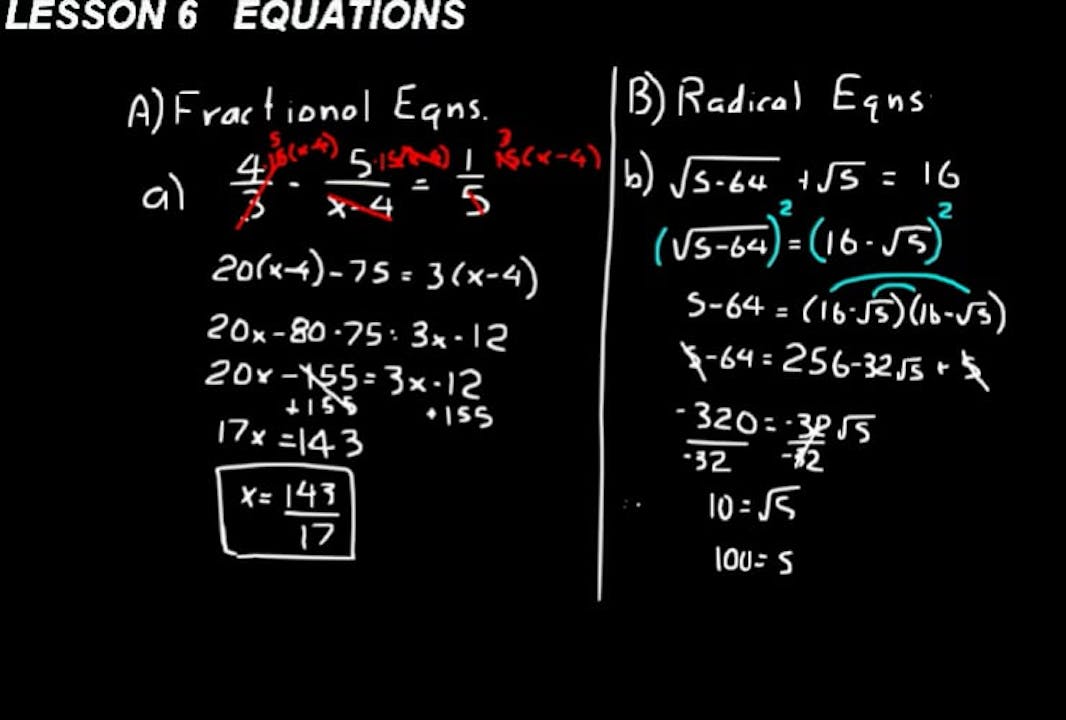 LESSON 6 EQUATIONS
A) Fractional Eqns.
a) 4/3 · 15(x-4) 5 - 5/(x-4) · 15(x-4) = 1/5 · 15(x-4) 3
20(x-4) - 75 = 3(x-4)
20x - 80 - 75 = 3x - 12
20x - 155 = 3x - 12
+155 +155
17x = 143
x = 143/17
B) Radical Eqns.
b) √(s-64) + √s = 16
(√(s-64))² = (16 - √s)²
s - 64 = (16 - √s)(16 - √s)
s - 64 = 256 - 32√s + s
-320/-32 = -32/-32 √s
10 = √s
100 = s